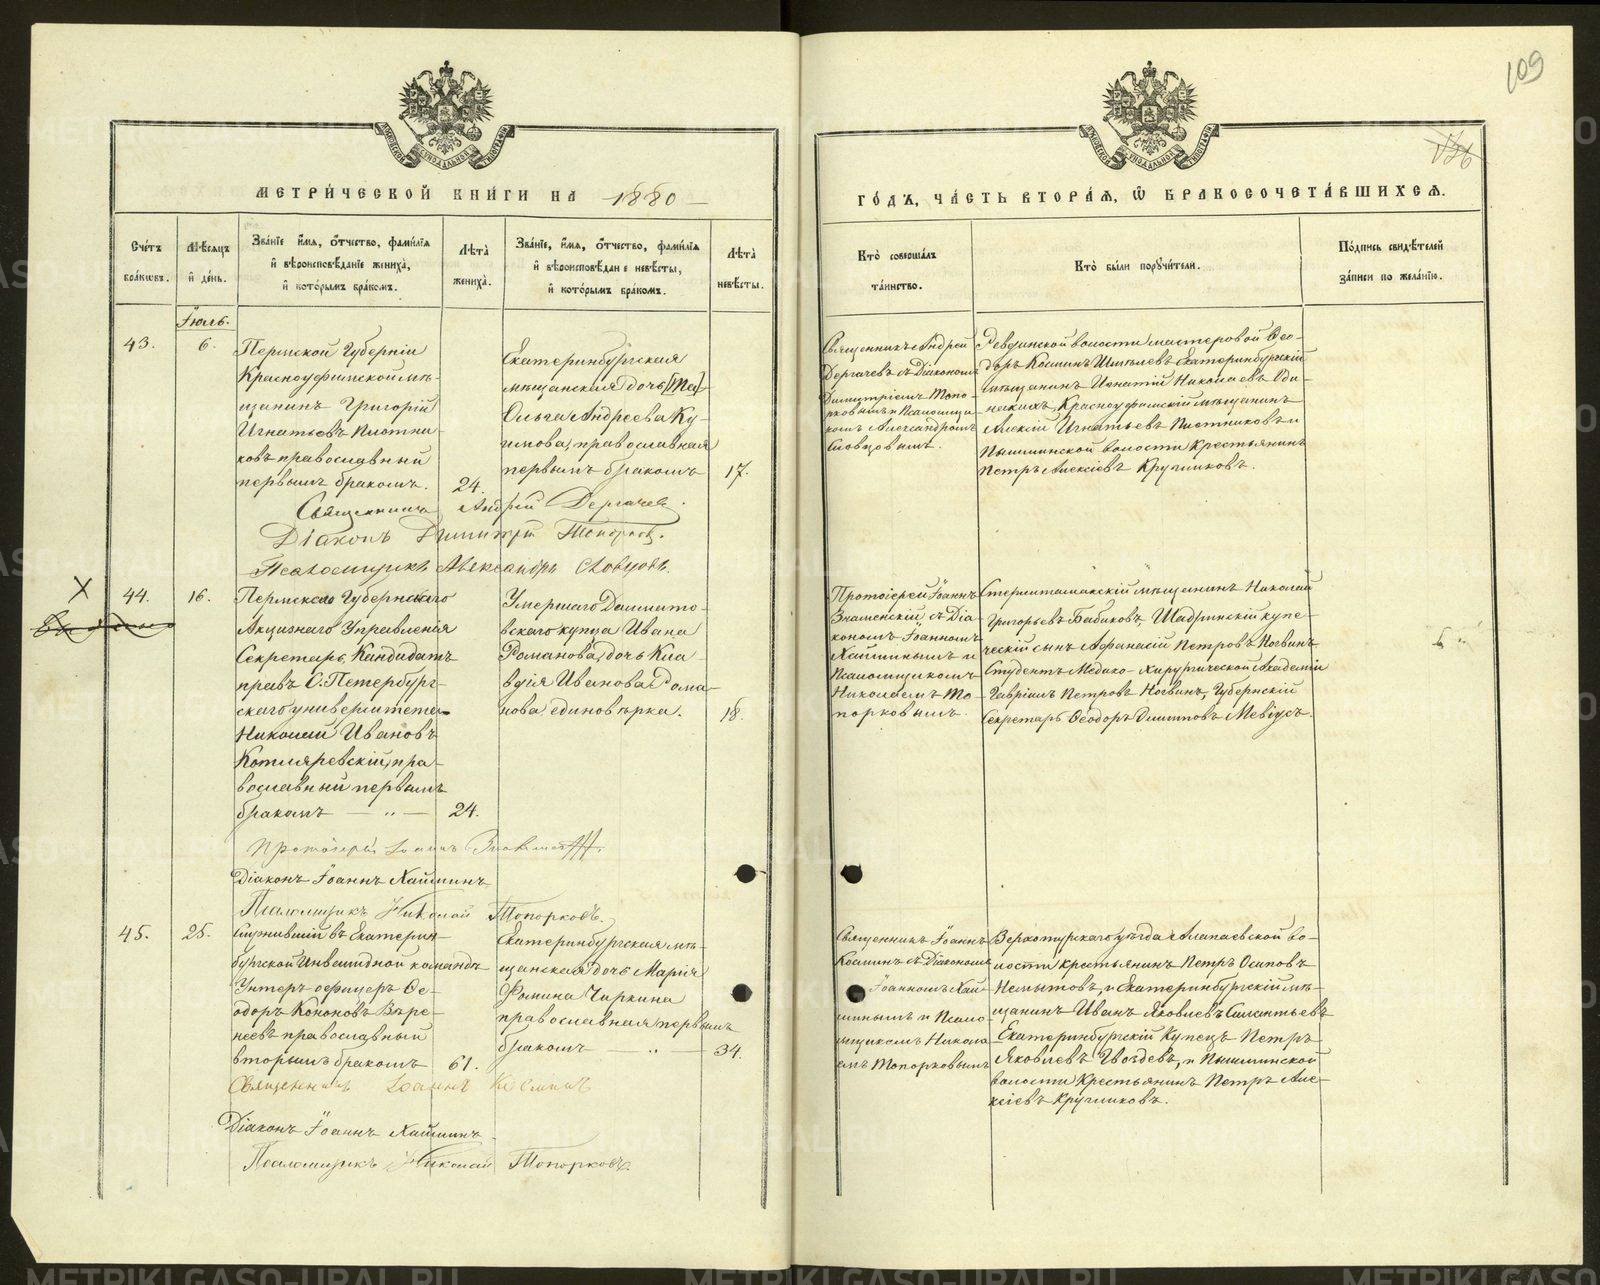 109
МЕТРИ́ЧЕСКОЙ КНИ́ГИ НА 1880
ГО́ДЪ, ЧА́СТЬ ВТОРА́Я, Ѿ БРАКОСОЧЕТА́ВШИХСЯ.
Сче́тъ бра́кѡвъ.
Мѣ́сяцъ и҆ де́нь.
Зва́нїе и҆́мя, ѻ҆́тчество, фами́лїя
и҆ вѣроисповѣ́данїе жениха̀,
и҆ кото́рымъ бра́комъ.
Лѣта̀ жениха̀.
Зва́нїе, и҆́мя, ѻ҆́тчество, фами́лїя
и҆ вѣроисповѣ́данїе невѣ́сты,
и҆ кото́рымъ бра́комъ.
Лѣта̀ невѣ́сты.
Кто̀ соверша́лъ та́инство.
Кто̀ бы́ли порꙋчи́тели.
По́дпись свидѣ́телей за́писи по жела́нїю.
Іюль.
43.
6.
Пермской Губерніи
Красноуфимской мѣ-
щанинъ Григорій
Игнатьевъ Плотни-
ковъ православный
первымъ бракомъ.
24.
Екатеринбургская
мѣщанская дочь
Ольга Андреева Ку-
гимова, православная
первымъ бракомъ
17.
Священникъ Андрей
Дергачевъ съ Діакономъ
Димитріемъ Топо-
рковымъ и Псаломщи-
комъ Александромъ
Словцовымъ.
Ревдинской волости мастеровой Ѳео-
доръ Козминъ Шмелевъ, Екатеринбургскій
мѣщанинъ Игнатій Николаевъ Оди-
нскихъ, Красноуфимскій мѣщанинъ
Алексѣй Игнатьевъ Плотниковъ и
Пышминской волости Крестьянинъ
Петръ Алексіевъ Кругликовъ.
Священникъ Андрей Дергачевъ.
Діаконъ Димитрій Топорковъ.
Псаломщикъ Александръ Словцовъ.
44.
16.
Пермскаго Губернскаго
Акцизнаго Управленія
Секретарь, Кандидатъ
правъ С. Петербург-
скаго университета
Николай Ивановъ
Котляревскій, пра-
вославный первымъ
бракомъ
24.
Умершаго Далмато-
вскаго купца Ивана
Романова, дочь Кла-
вдія Иванова Рома-
нова, единовѣрка.
18.
Протоіерей Іоаннъ
Знаменскій съ Діа-
кономъ Іоанномъ
Хайминымъ и
Псаломщикомъ
Николаемъ То-
порковымъ.
Стерлитамакскій мѣщанинъ Николай
Григорьевъ Бабиковъ, Шадринскій купе-
ческій сынъ Афанасій Петровъ Ногвинъ
Студентъ Медико-Хирургической Академіи
Гавріилъ Петровъ Ногвинъ, Губернскій
Секретарь Ѳеодоръ Филиповъ Мевіусъ.
Протоіерей Іоаннъ Знаменскій.
Діаконъ Іоаннъ Хайминъ
Псаломщикъ Николай Топорковъ.
45.
25.
Служившій въ Екатерин-
бургской Инвалидной командѣ
Унтеръ офицеръ Ѳе-
одоръ Кононовъ Вѣре-
неевъ православный
вторымъ бракомъ
61.
Екатеринбургская мѣ-
щанская дочь Марія
Фомина Чиркина
православная, первымъ
бракомъ
34.
Священникъ Іоаннъ
Козминъ съ Діакономъ
Іоанномъ Хай-
минымъ и Псало-
мщикомъ Никола-
емъ Топорковымъ
Верхотурскаго уѣзда Алапаевской во-
лости крестьянинъ Петръ Осиповъ
Немытовъ, и Екатеринбургскій мѣ-
щанинъ Иванъ Яковлевъ Силантьевъ
Екатеринбургскій Купецъ Петръ
Яковлевъ Гвоздевъ, и Пышминской
волости Крестьянинъ Петръ Алек-
ксіевъ Кругликовъ.
Священникъ Іоаннъ Козминъ
Діаконъ Іоаннъ Хайминъ.
Псаломщикъ Николай Топорковъ.
METRIKI.GASO-URAL.RU